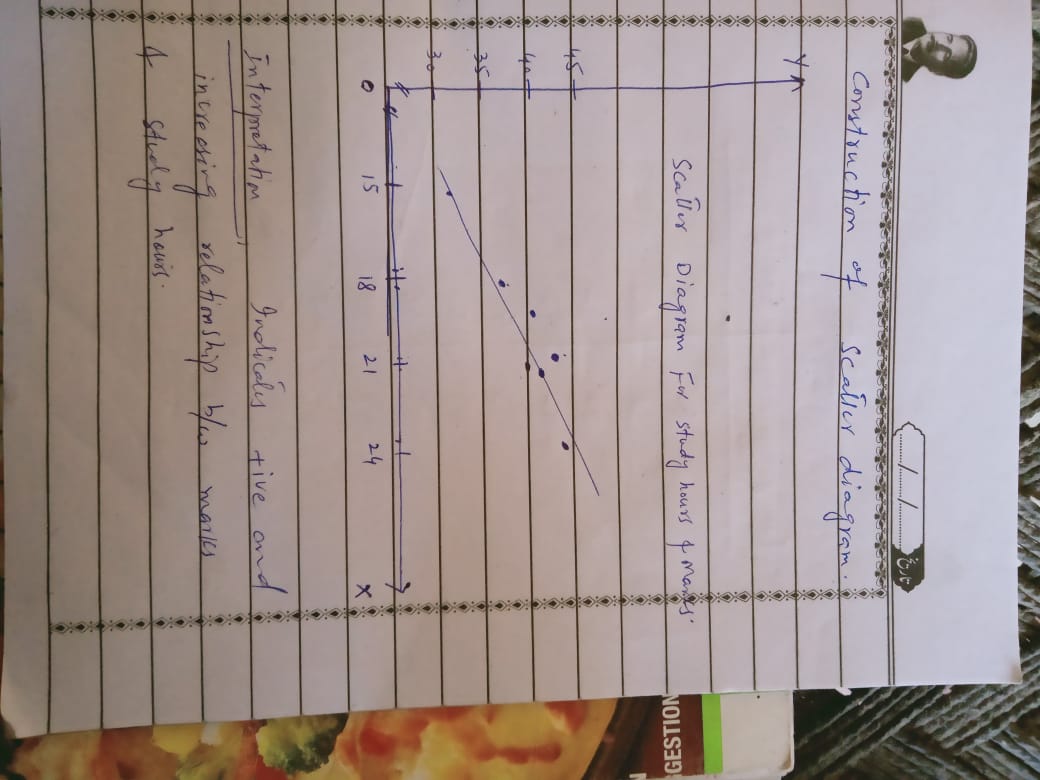 Construction of Scatter diagram.
تاریخ
Scatter Diagram For study hours & Marks.
Y
45
40
35
30
0 15 18 21 24 X
Interpretation Indicates +ive and
increasing relationship b/w marks
& study hours.
GESTION
N